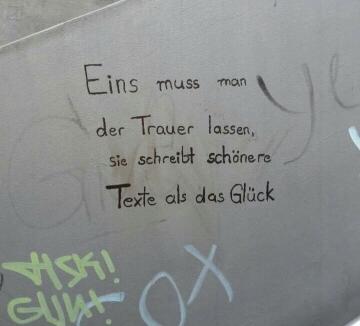 Eins muss man
der Trauer lassen,
sie schreibt schönere
Texte als das Glück